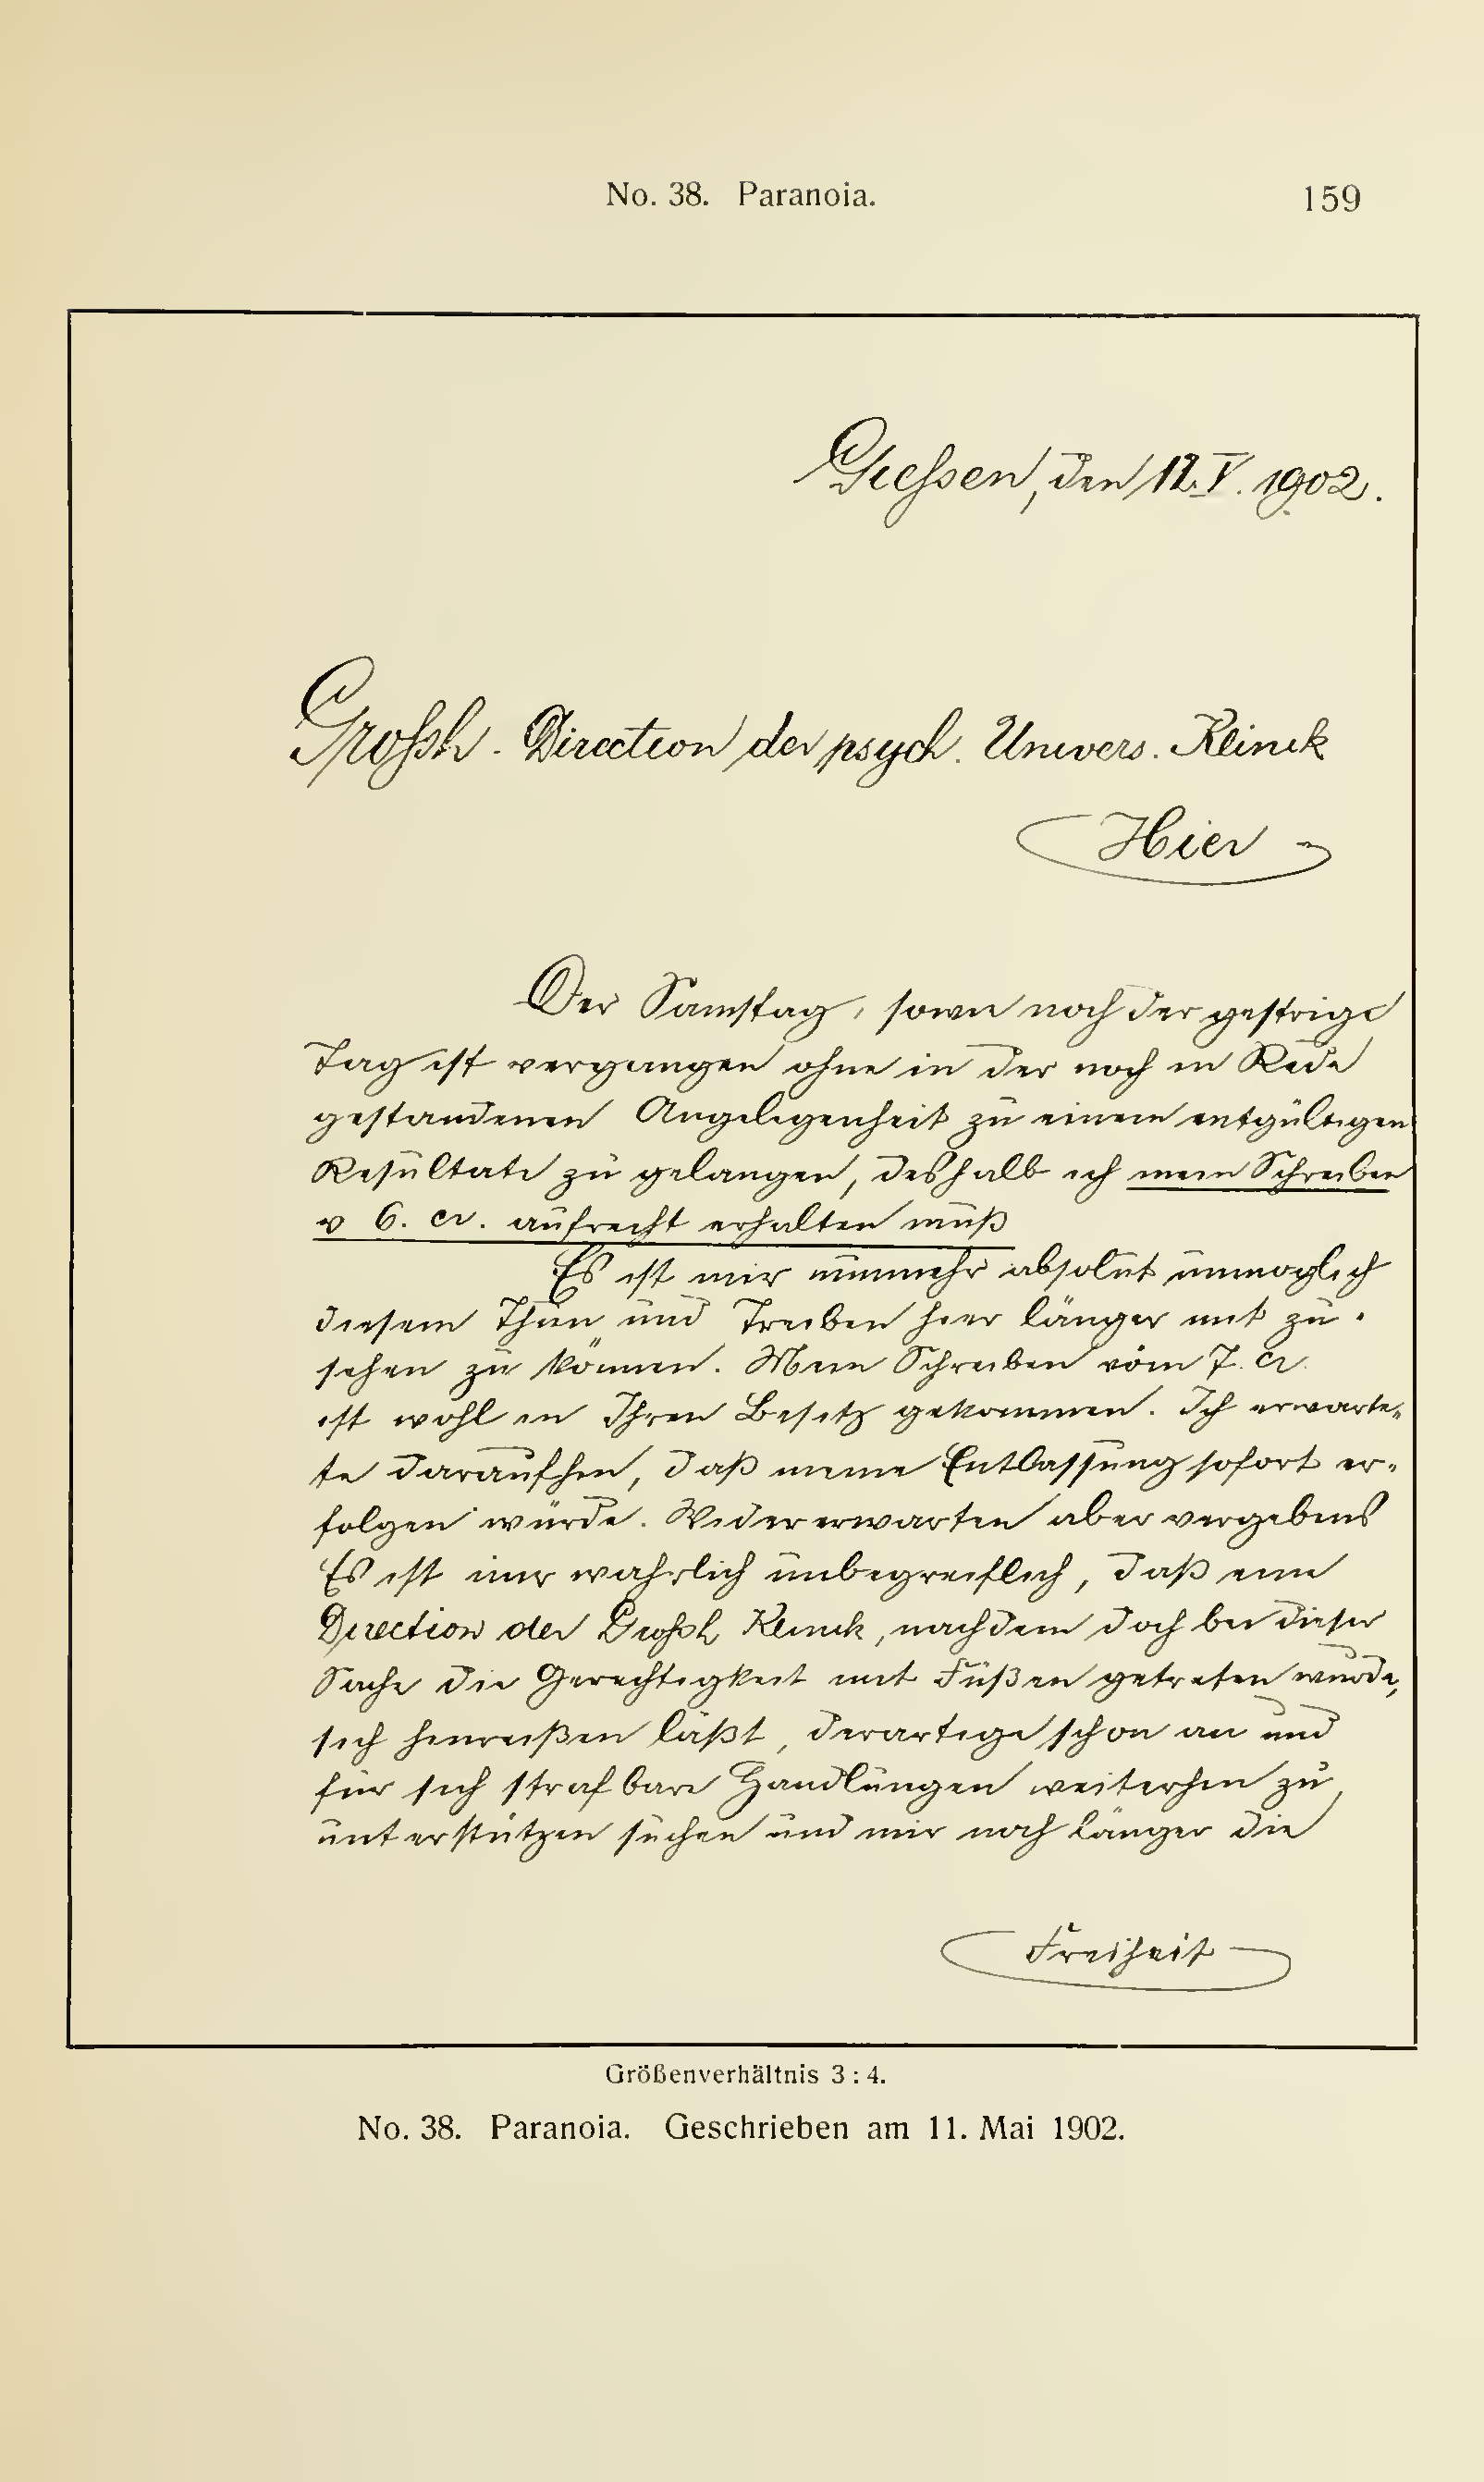 No. 38. Paranoia.
159
Giessen, den 12. V. 1902.
Grossh. Direction der psych. Univers. Klinik
Hier
Der Samstag, sowie noch der gestrige
Tag ist vergangen ohne in der noch in Rede
gestandenen Angelegenheit zu einem entgültigen
Resultate zu gelangen, deshalb ich mein Schreiben
v 6. cr. aufrecht erhalten muß
Es ist mir nunmehr absolut unmoglich
diesem Thun und Treiben hier länger mit zu-
sehen zu können. Mein Schreiben vom 7. cr.
ist wohl in Ihren Besitz gekommen. Ich erwarte-
te daraufhin, daß meine Entlassung sofort er-
folgen würde. Widererwarten aber vergebens
Es ist mir wahrlich unbegreiflich, daß eine
Direction der Grossh Klinik, nachdem doch bei dieser
Sache die Gerechtigkeit mit Füßen getreten wurde,
sich hinreißen läßt, derartige schon an und
für sich strafbare Handlungen weiterhin zu
unterstützen suchen und mir noch länger die
Freiheit
Größenverhältnis 3 : 4.
No. 38. Paranoia. Geschrieben am 11. Mai 1902.